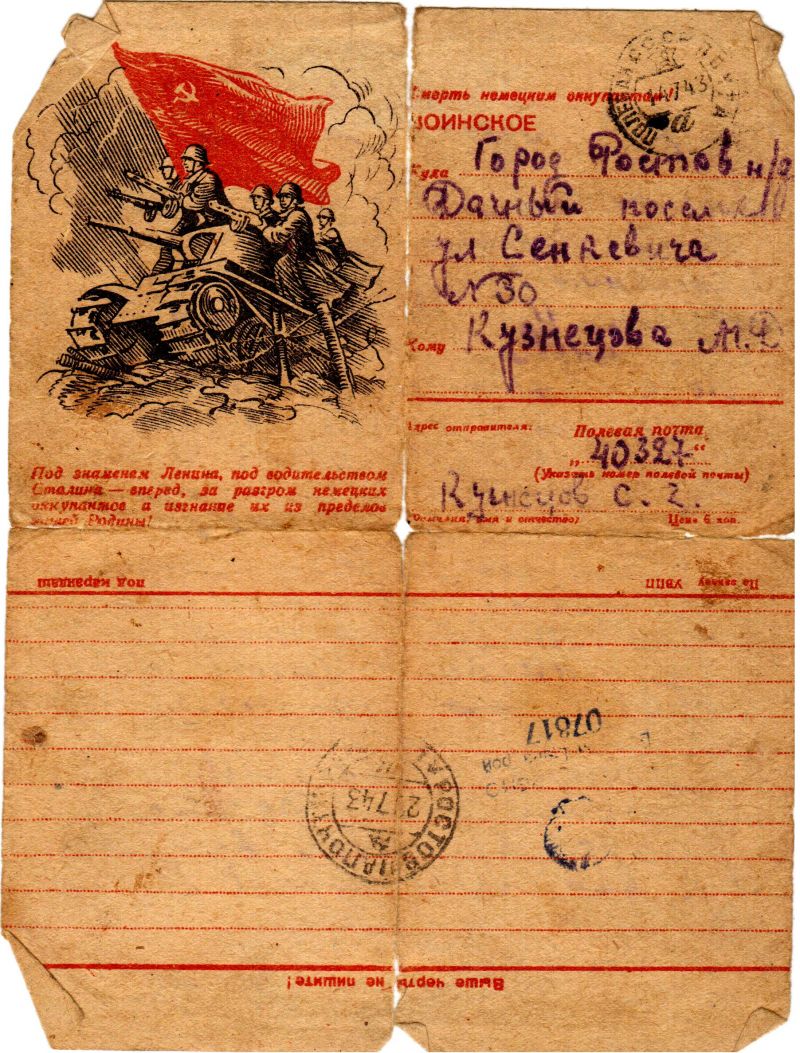 Смерть немецким оккупантам!
ВОИНСКОЕ
Куда Город Ростов н/д
Дачный поселок
ул Сенкевича
№ 30
Кому Кузнецова М.Д
Адрес отправителя:
Полевая почта
„40327“
(Указать номер полевой почты)
Кузнецов С. Г.
(Фамилия, имя и отчество)
Цена 6 коп.
Под знаменем Ленина, под водительством
Сталина — вперед, за разгром немецких
оккупантов и изгнание их из пределов
нашей Родины!
под карандаш
УВПП
07817
РОСТОВ
43
Выше черты не пишите!